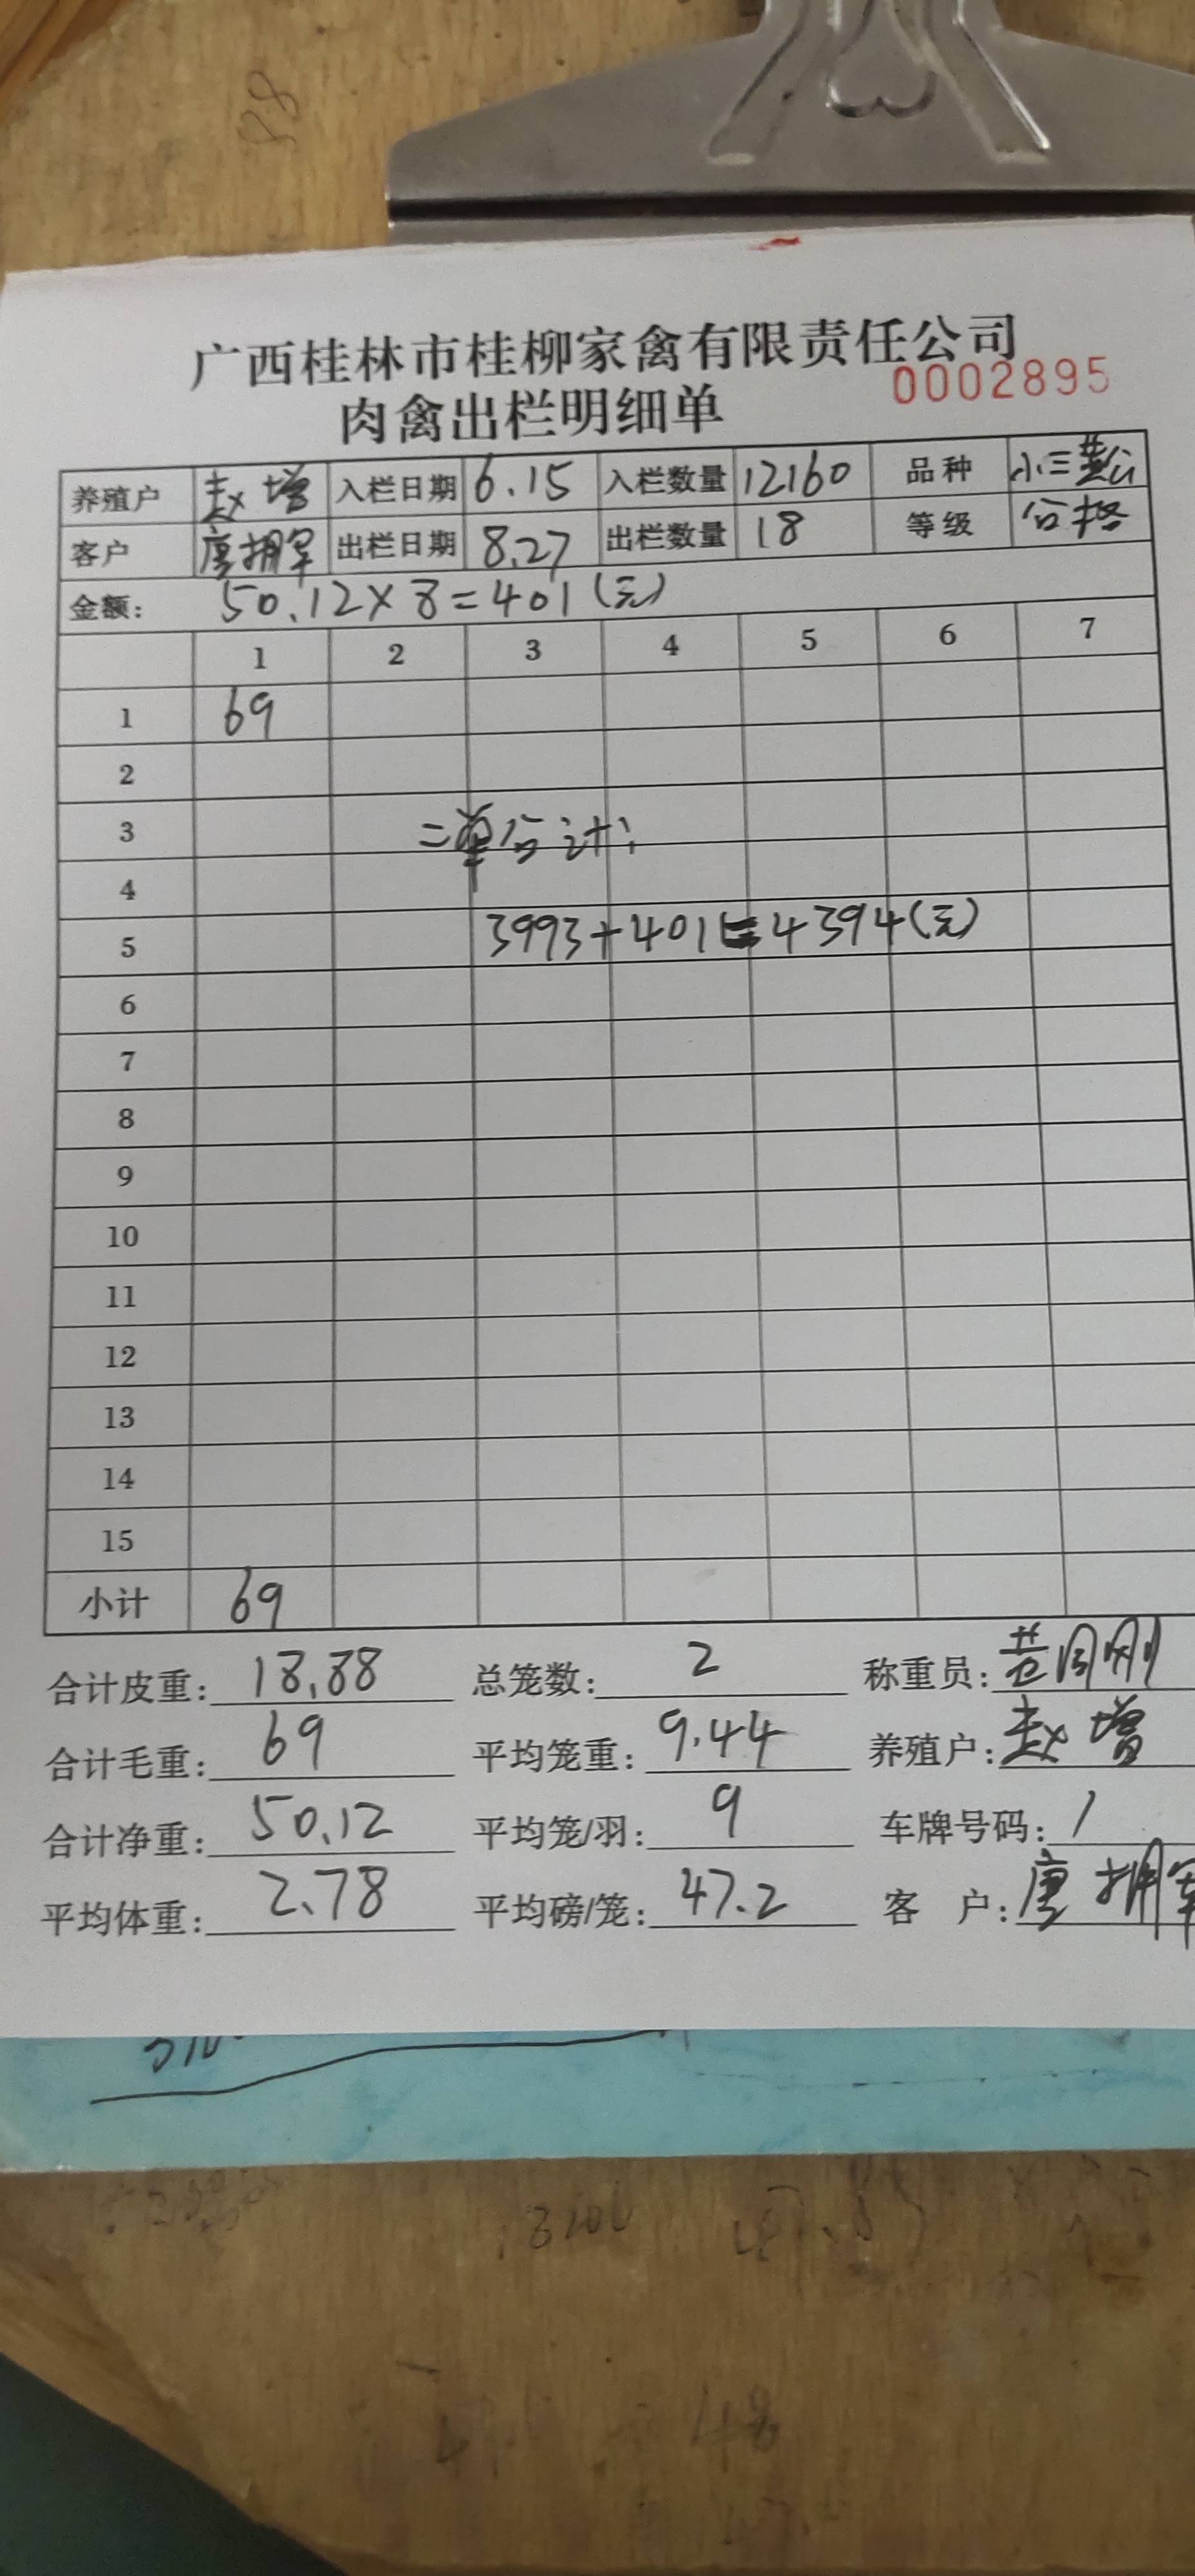 广西桂林市桂柳家禽有限责任公司
0002895
肉禽出栏明细单
养殖户 赵增 入栏日期 6.15 入栏数量 12160 品种 小三黄公
客户 唐拥军 出栏日期 8.27 出栏数量 18 等级 合格
金额: 50.12×8=401(元)
1 2 3 4 5 6 7
1 69
2
3 二单合计:
4
5 3993+401=4394(元)
6
7
8
9
10
11
12
13
14
15
小计 69
合计皮重: 18.88 总笼数: 2 称重员: 刚
合计毛重: 69 平均笼重: 9.44 养殖户: 赵增
合计净重: 50.12 平均笼/羽: 9 车牌号码: /
平均体重: 2.78 平均磅/笼: 47.2 客 户: 唐拥军